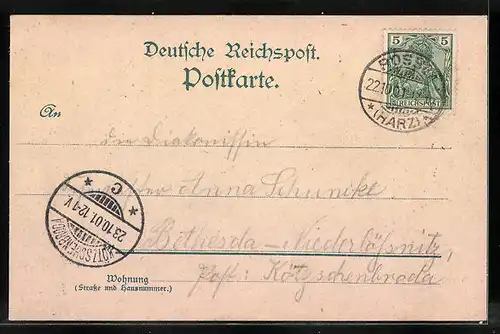 Deutsche Reichspost.
Postkarte.
5 5
REICHSPOST
22.10.01
* (HARZ) *
An
die Diakonissin
Anna Schuncke
Bethesda-Niederlößnitz,
Post: Kötzschenbroda
* C *
23.10.01.12-1V
KÖTZSCHENBRODA
Wohnung
(Straße und Hausnummer.)